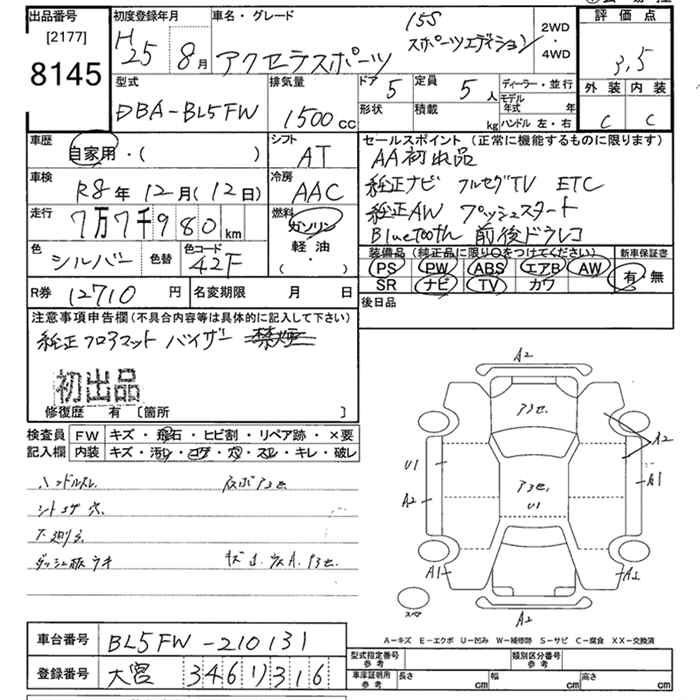 出品番号 初度登録年月 車名・グレード 15S 2WD 評価点
[2177] H25 8月 アクセラスポーツ スポーツエディション ・4WD 3.5
8145 型式 排気量 ドア 5 定員 5人 ディーラー・並行 外装 内装
DBA-BL5FW 1500cc 形状 積載 kg モデル年式 年 C C
ハンドル 左・右
車歴 シフト セールスポイント (正常に機能するものに限ります)
自家用・( ) AT AA初出品
車検 R8年12月(12日) 冷房 AAC 純正ナビ フルセグTV ETC
走行 7万7千980km 燃料 ガソリン 純正AW プッシュスタート
軽油 Bluetooth 前後ドラレコ
色 シルバー 色替 色コード 42F ・( ) 装備品 (純正品に限り○をつけてください) 新車保証書
PS PW ABS エアB AW 有・無
R券 12710円 名変期限 月 日 SR ナビ TV カワ
注意事項申告欄(不具合内容等は具体的に記入して下さい) 後日品
純正フロアマット バイザー 禁煙
初出品
修復歴 有 [箇所 ]
検査員 FW キズ・飛石・ヒビ割・リペア跡・×要
記入欄 内装 キズ・汚レ・コゲ・穴・スレ・キレ・破レ
ハンドルスレ
シートコゲ穴
ダッシュ板ウキ
A2
A3セ
A2
U1
A2 A3セ U1 A1
A1 A1
スペア
A2
A-キズ E-エクボ U-凹み W-補修跡 S-サビ C-腐食 XX-交換済
車台番号 BL5FW-210131
登録番号 大宮 346 リ 316
型式指定番号 参考 類別区分番号 参考
車庫証明用 参考 長さ cm 幅 cm 高さ cm